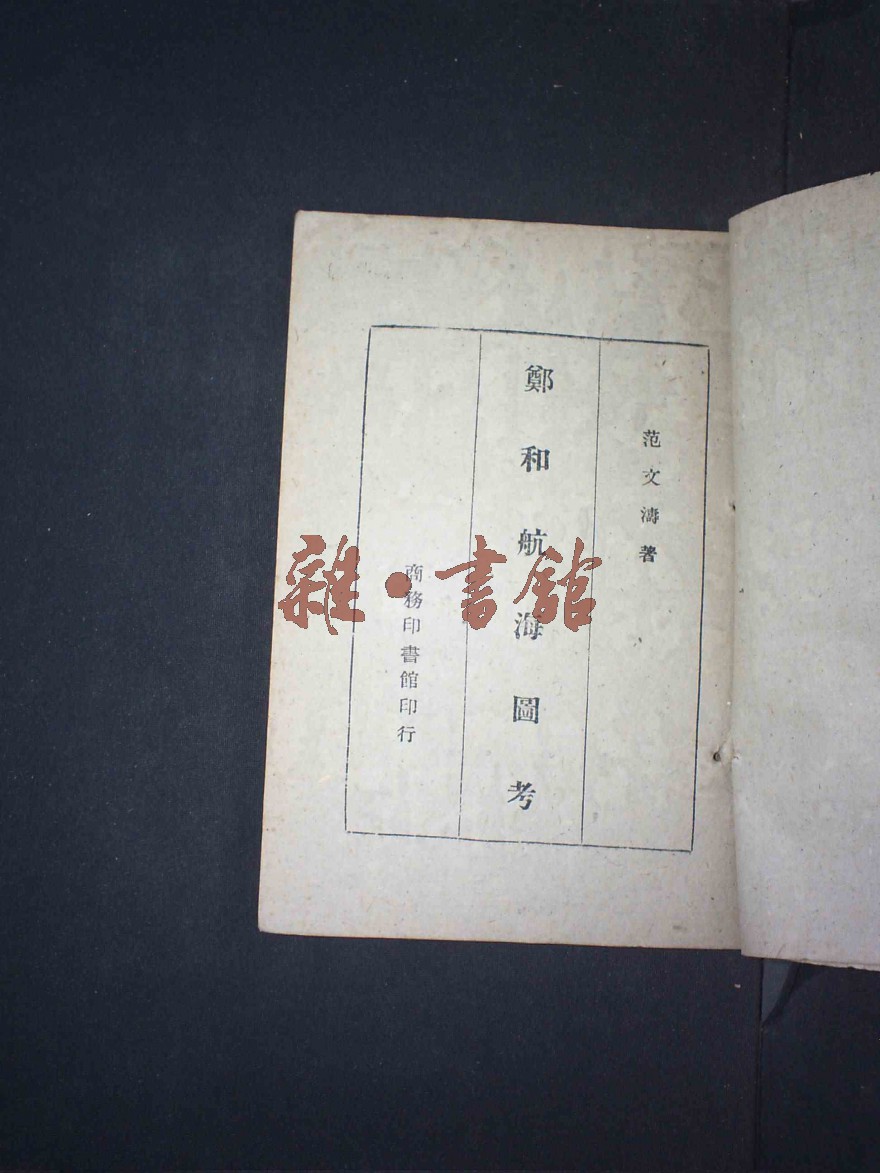 范文濤著
鄭和航海圖考
商務印書館印行
雜·書館